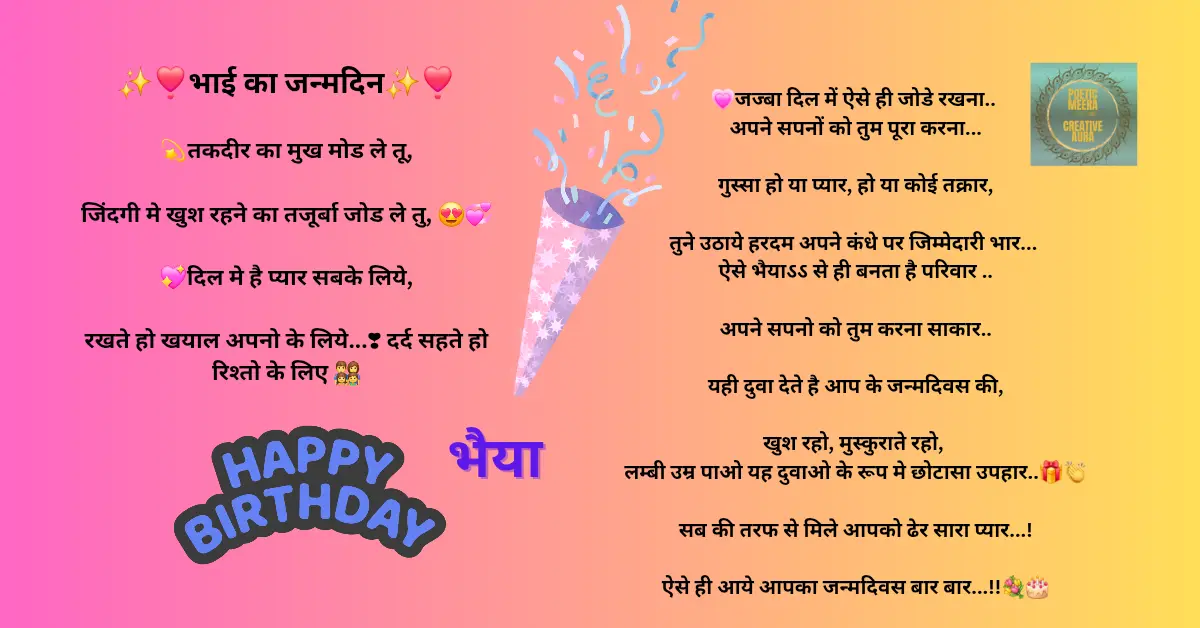 ✨❤️भाई का जन्मदिन✨❤️
💫तकदीर का मुख मोड ले तू,
जिंदगी मे खुश रहने का तजूर्बा जोड ले तु, 😍💞
💖दिल मे है प्यार सबके लिये,
रखते हो खयाल अपनो के लिये...❣ दर्द सहते हो
रिश्तो के लिए 👨‍👩‍👧‍👧
HAPPY
BIRTHDAY
भैया
💗जज्बा दिल में ऐसे ही जोडे रखना..
अपने सपनों को तुम पूरा करना...
गुस्सा हो या प्यार, हो या कोई तक्रार,
तुने उठाये हरदम अपने कंधे पर जिम्मेदारी भार...
ऐसे भैयाऽऽ से ही बनता है परिवार ..
अपने सपनो को तुम करना साकार..
यही दुवा देते है आप के जन्मदिवस की,
खुश रहो, मुस्कुराते रहो,
लम्बी उम्र पाओ यह दुवाओ के रूप मे छोटासा उपहार..🎁👏
सब की तरफ से मिले आपको ढेर सारा प्यार...!
ऐसे ही आये आपका जन्मदिवस बार बार...!!💐🎂
POETIC
MEERA
CREATIVE
AURA